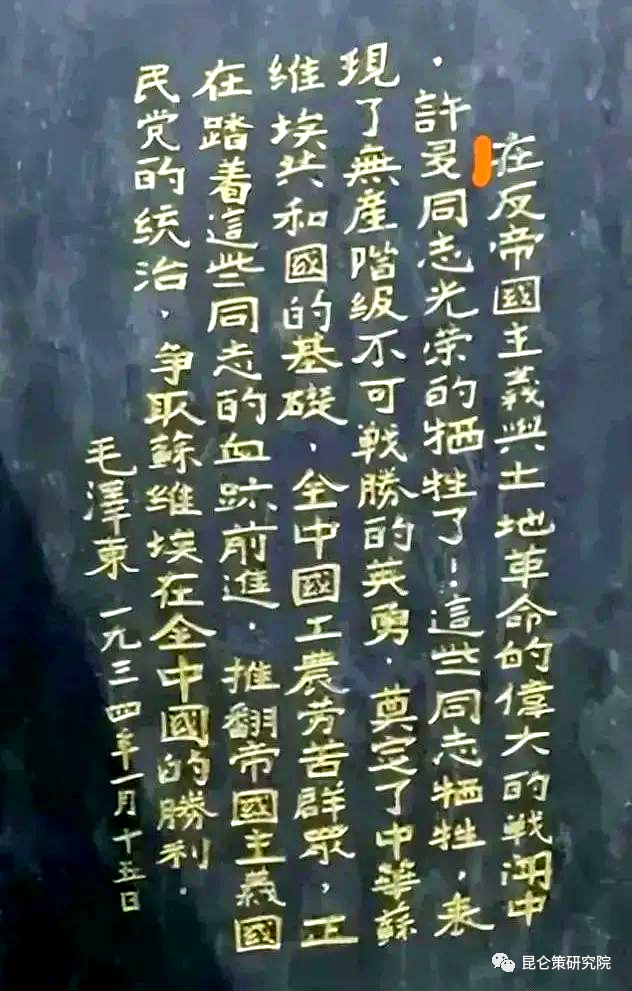 在反帝國主義與土地革命的偉大的戰鬥中
，許多同志光荣的牺牲了！這些同志牺牲，表
現了無產階級不可戰勝的英勇，奠定了中華蘇
維埃共和國的基礎，全中國工農劳苦群眾，正
在踏着這些同志的血跡前進，推翻帝國主義國
民党的統治，争取蘇維埃在全中國的勝利．
毛澤東 一九三四年一月十五日
昆仑策研究院